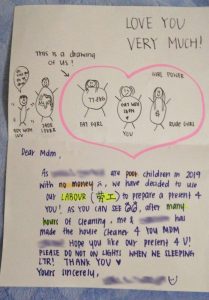 LOVE YOU
VERY MUCH!
This is a drawing
of us!
GIRL POWER
FAT GIRL
YOU
RUDE GIRL
Dear Mdm,
As are poor children in 2019
with no money, we have decided to use
our LABOUR (劳工) to prepare a present 4
YOU! AS YOU CAN SEE, after many
hours of cleaning, me & has
made the house cleaner 4 YOU MDM
Hope you like our present 4 U!
PLEASE DO NOT ON LIGHTS WHEN WE SLEEPING
LTR! THANK YOU ♥
Yours sincerely,